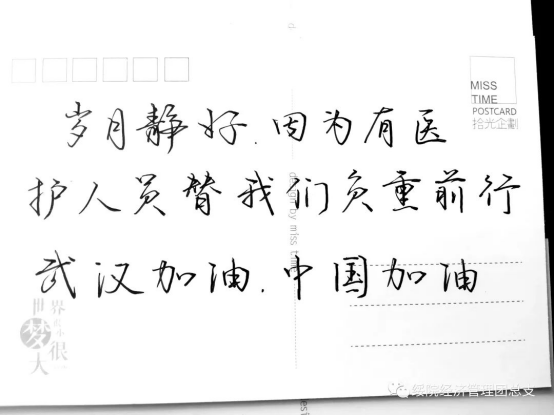 MISS
TIME
POSTCARD
拾光企劃
岁月静好.因为有医
护人员替我们负重前行
武汉加油.中国加油
by miss
世界
梦
很
大
绥院经济管理团总支